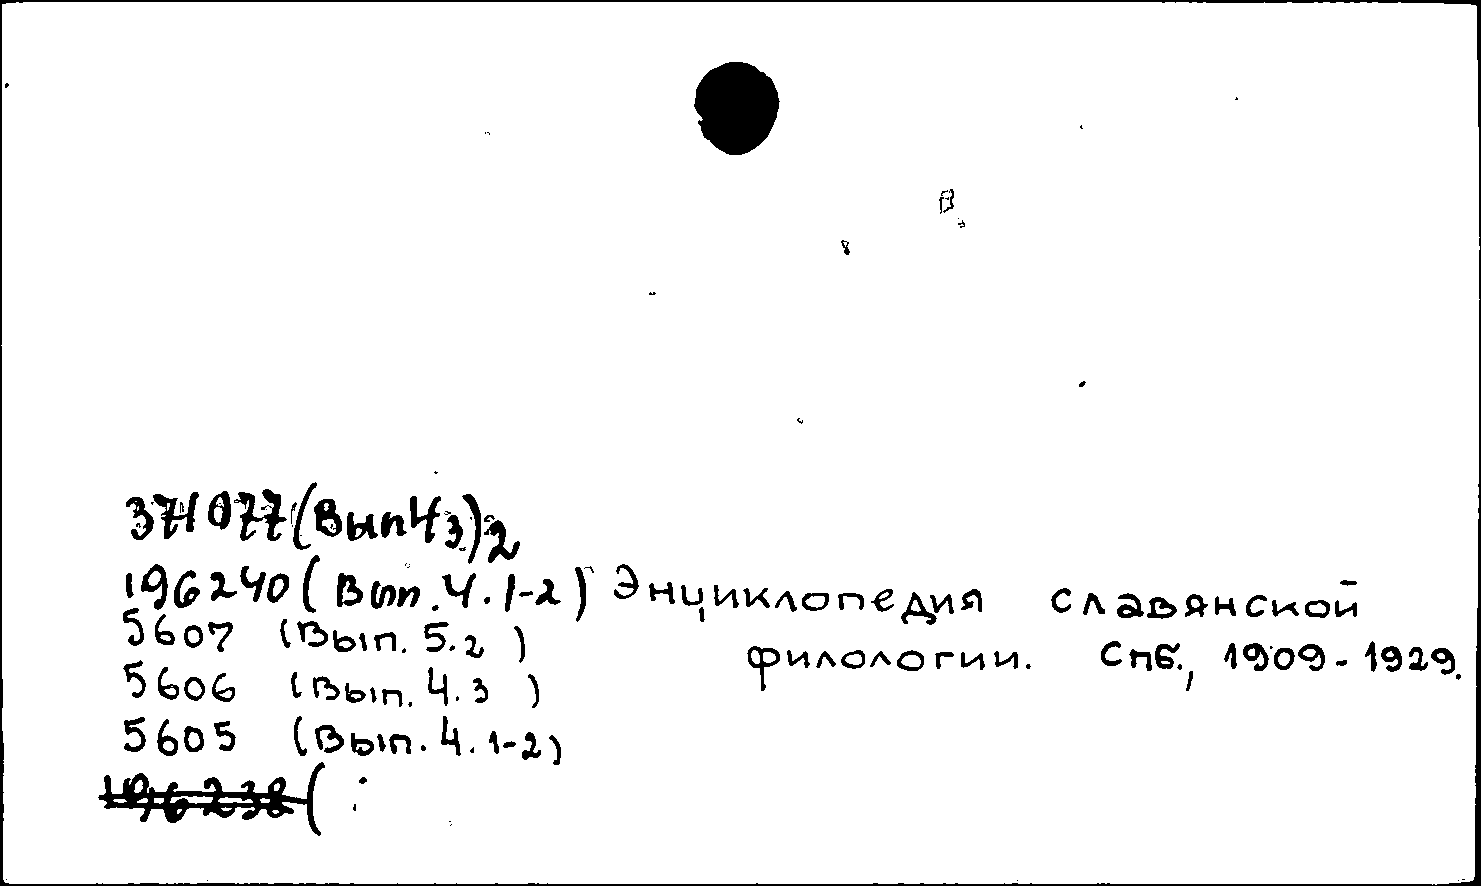 371077 (Вып 4 3) 2
196240 (Вып. 4. 1-2) Энциклопедия славянской
5607 (Вып. 5.2) филологии. Спб., 1909-1929.
5606 (Вып. 4.3)
5605 (Вып. 4. 1-2)
196238 (